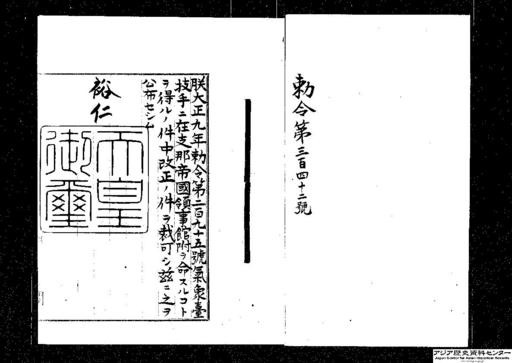 勅令第三百四十二號
朕大正九年勅令第二百九十五號氣象臺
技手ニ在支那帝國領事館附ヲ命スルコト
ヲ得ルノ件中改正ノ件ヲ裁可シ茲ニ之ヲ
公布セシム
裕仁
天皇
御璽
アジア歴史資料センター
Japan Center for Asian Historical Records